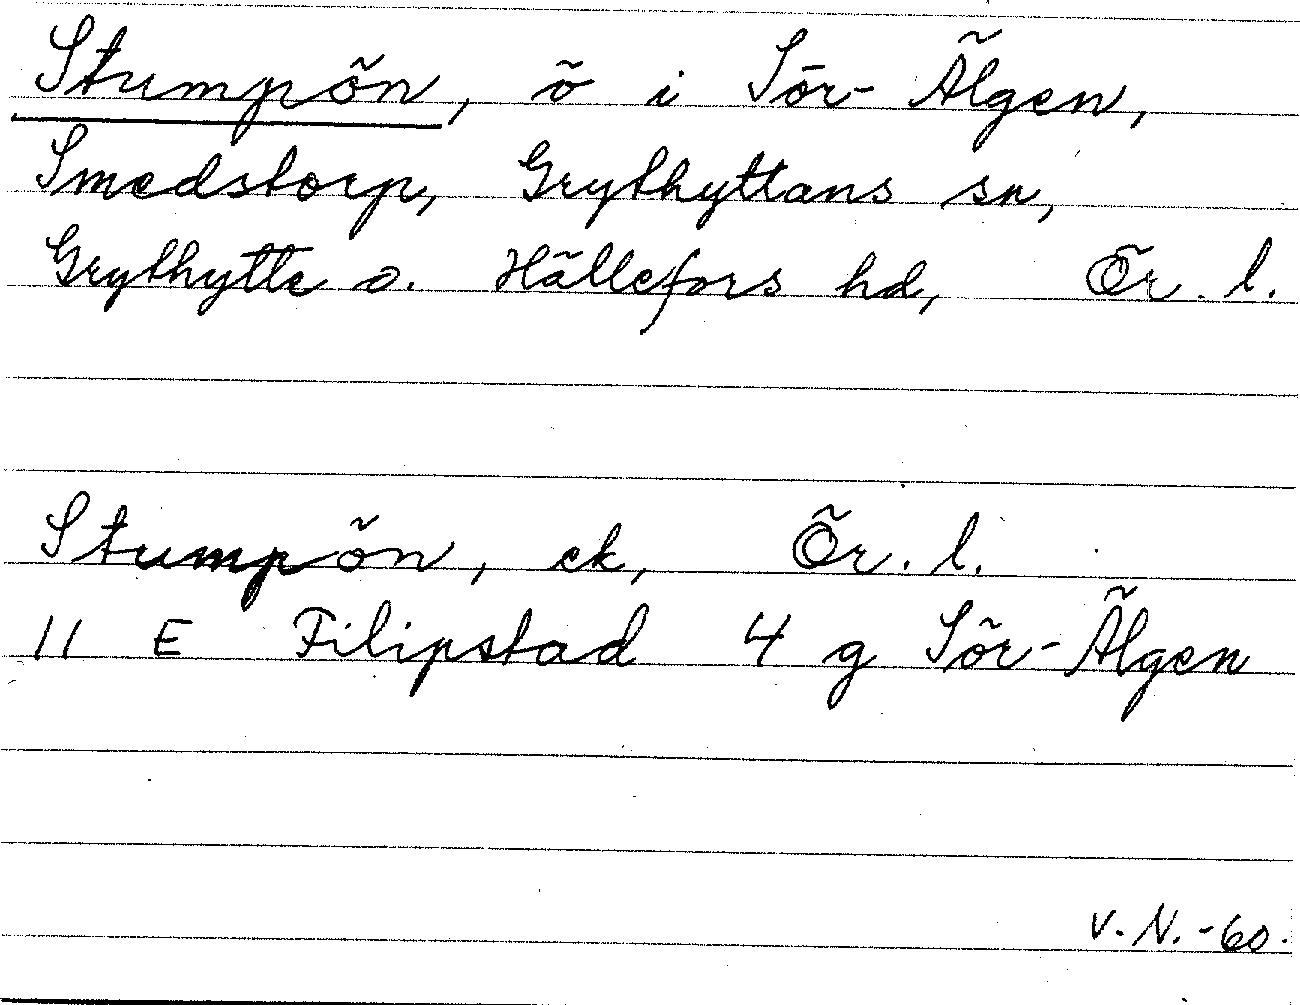 Stumpön, ö i Sör-Älgen,
Smedstorp, Grythyttans sn,
Grythytte o. Hällefors hd, Ör. l.
Stumpön, ek, Ör. l.
11 E Filipstad 4 g Sör-Älgen
V. N. -60.